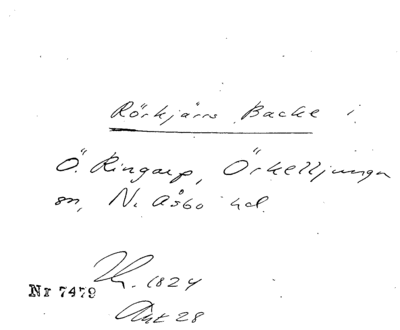 Rörkjärrs Backe i
Ö. Ringarp, Örkelljunga
sn, N. Åsbo hd.
1824
Nr 7479
Akt 28